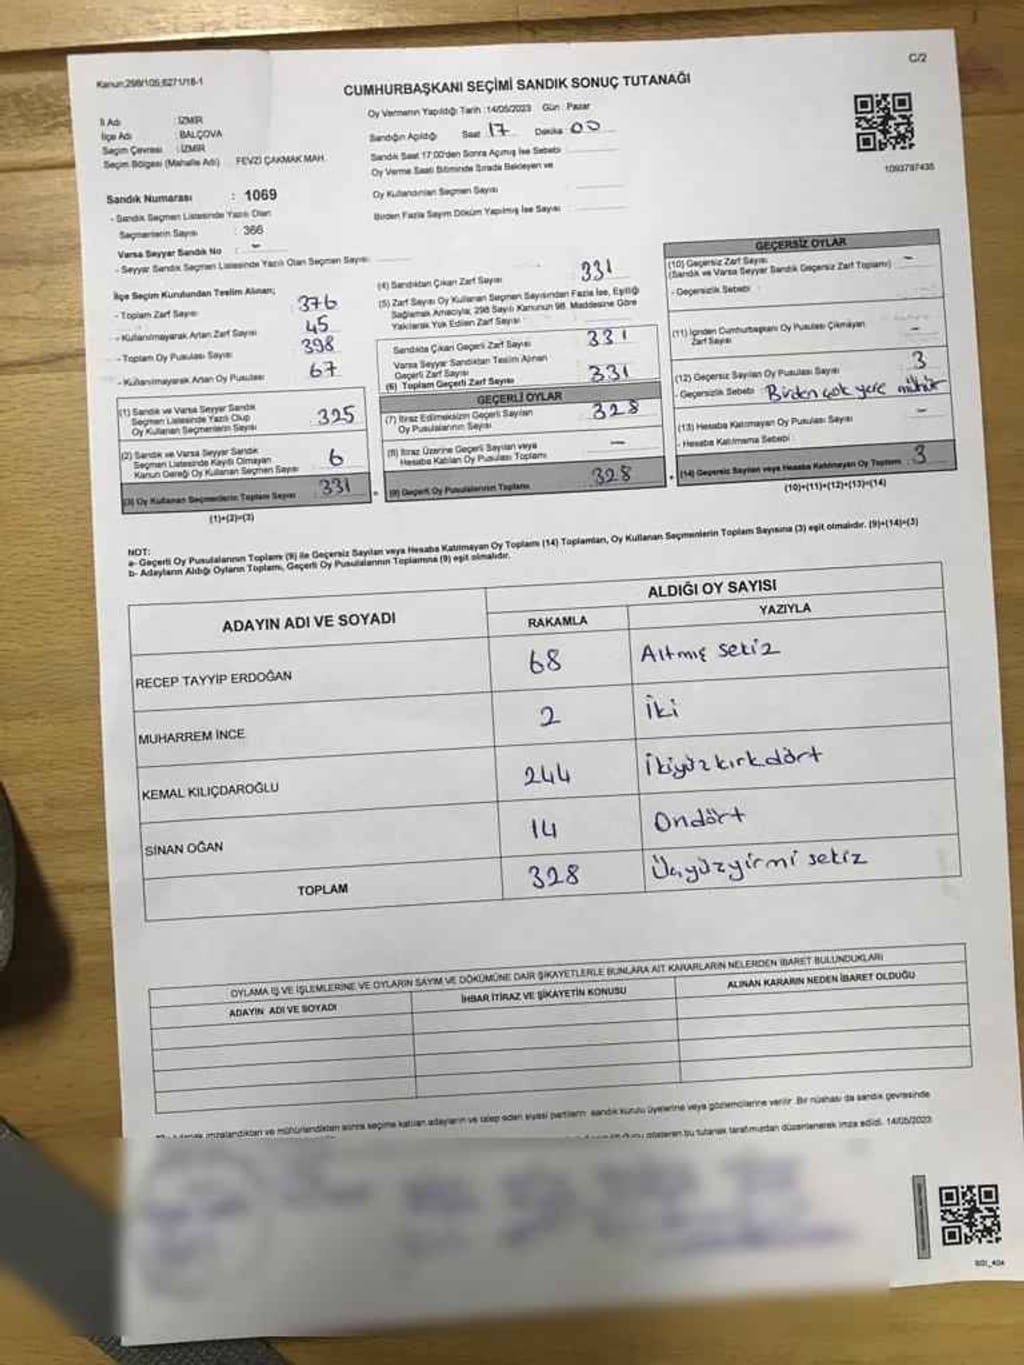 Kanun:298/105;6271/18-1
C/2
CUMHURBAŞKANI SEÇİMİ SANDIK SONUÇ TUTANAĞI
İl Adı : İZMİR
İlçe Adı : BALÇOVA
Seçim Çevresi : İZMİR
Seçim Bölgesi (Mahalle Adı) FEVZİ ÇAKMAK MAH.
Oy Vermenin Yapıldığı Tarih :14/05/2023 Gün : Pazar
Sandığın Açıldığı Saat 17 Dakika 00
Sandık Saat 17:00'den Sonra Açılmış İse Sebebi
Oy Verme Saati Bitiminde Sırada Bekleyen ve
Oy Kullandırılan Seçmen Sayısı
Birden Fazla Sayım Döküm Yapılmış İse Sayısı
1093797435
Sandık Numarası : 1069
- Sandık Seçmen Listesinde Yazılı Olan
Seçmenlerin Sayısı : 366
Varsa Seyyar Sandık No : -
- Seyyar Sandık Seçmen Listesinde Yazılı Olan Seçmen Sayısı:
İlçe Seçim Kurulundan Teslim Alınan;
- Toplam Zarf Sayısı 376
- Kullanılmayarak Artan Zarf Sayısı 45
- Toplam Oy Pusulası Sayısı 398
- Kullanılmayarak Artan Oy Pusulası 67
(1) Sandık ve Varsa Seyyar Sandık
Seçmen Listesinde Yazılı Olup
Oy Kullanan Seçmenlerin Sayısı 325
(2) Sandık ve Varsa Seyyar Sandık
Seçmen Listesinde Kayıtlı Olmayan
Kanun Gereği Oy Kullanan Seçmen Sayısı 6
(3) Oy Kullanan Seçmenlerin Toplam Sayısı 331
(1)+(2)=(3)
(4) Sandıktan Çıkan Zarf Sayısı 331
(5) Zarf Sayısı Oy Kullanan Seçmen Sayısından Fazla İse, Eşitliği
Sağlamak Amacıyla; 298 Sayılı Kanunun 98. Maddesine Göre
Yakılarak Yok Edilen Zarf Sayısı :
Sandıkta Çıkan Geçerli Zarf Sayısı 331
Varsa Seyyar Sandıktan Teslim Alınan
Geçerli Zarf Sayısı
(6) Toplam Geçerli Zarf Sayısı 331
GEÇERLİ OYLAR
(7) İtiraz Edilmeksizin Geçerli Sayılan
Oy Pusulalarının Sayısı 328
(8) İtiraz Üzerine Geçerli Sayılan veya
Hesaba Katılan Oy Pusulası Toplamı -
(9) Geçerli Oy Pusulalarının Toplamı 328
GEÇERSİZ OYLAR
(10) Geçersiz Zarf Sayısı -
(Sandık ve Varsa Seyyar Sandık Geçersiz Zarf Toplamı)
- Geçersizlik Sebebi :
(11) İçinden Cumhurbaşkanı Oy Pusulası Çıkmayan
Zarf Sayısı -
(12) Geçersiz Sayılan Oy Pusulası Sayısı 3
- Geçersizlik Sebebi : Birden çok yere mühür
(13) Hesaba Katılmayan Oy Pusulası Sayısı -
- Hesaba Katılmama Sebebi :
(14) Geçersiz Sayılan veya Hesaba Katılmayan Oy Toplamı 3
(10)+(11)+(12)+(13)=(14)
NOT:
a- Geçerli Oy Pusulalarının Toplamı (9) ile Geçersiz Sayılan veya Hesaba Katılmayan Oy Toplamı (14) Toplamları, Oy Kullanan Seçmenlerin Toplam Sayısına (3) eşit olmalıdır. (9)+(14)=(3)
b- Adayların Aldığı Oyların Toplamı, Geçerli Oy Pusulalarının Toplamına (9) eşit olmalıdır.
ADAYIN ADI VE SOYADI
ALDIĞI OY SAYISI
RAKAMLA YAZIYLA
RECEP TAYYİP ERDOĞAN 68 Altmış sekiz
MUHARREM İNCE 2 İki
KEMAL KILIÇDAROĞLU 244 İkiyüzkırkdört
SİNAN OĞAN 14 Ondört
TOPLAM 328 Üçyüzyirmi sekiz
OYLAMA İŞ VE İŞLEMLERİNE VE OYLARIN SAYIM VE DÖKÜMÜNE DAİR ŞİKAYETLERLE BUNLARA AİT KARARLARIN NELERDEN İBARET BULUNDUKLARI
ADAYIN ADI VE SOYADI İHBAR İTİRAZ VE ŞİKAYETİN KONUSU ALINAN KARARIN NEDEN İBARET OLDUĞU
imzalandıktan ve mühürlendikten sonra seçime katılan adayların ve talep eden siyasi partilerin sandık kurulu üyelerine veya gözlemcilerine verilir. Bir nüshası da sandık çevresinde
gösteren bu tutanak tarafımızdan düzenlenerek imza edildi. 14/05/2023